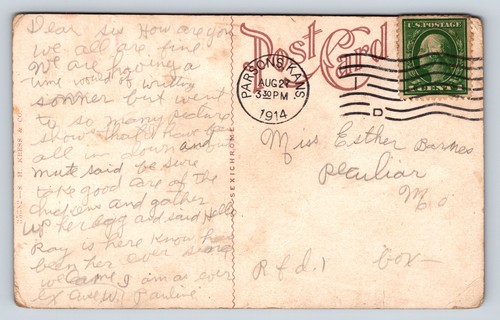 Dear Sis How are you
we all are fine
We are having a
time would of written
sooner but went
to so many picture
show that I have been
all in down and
mute said be sure
take good care of the
chickens and gather
up her egg and said Hello
Ray is here know he
been her ever since
we came I am as ever
Pauline
Post Card
U.S. POSTAGE
PARSONS, KANS.
AUG 27
3 30 PM
1914
D
Miss Esther Barnes
Peculiar
Mo
R f d. 1 box—
S. H. KRESS & CO.
SEXICHROME